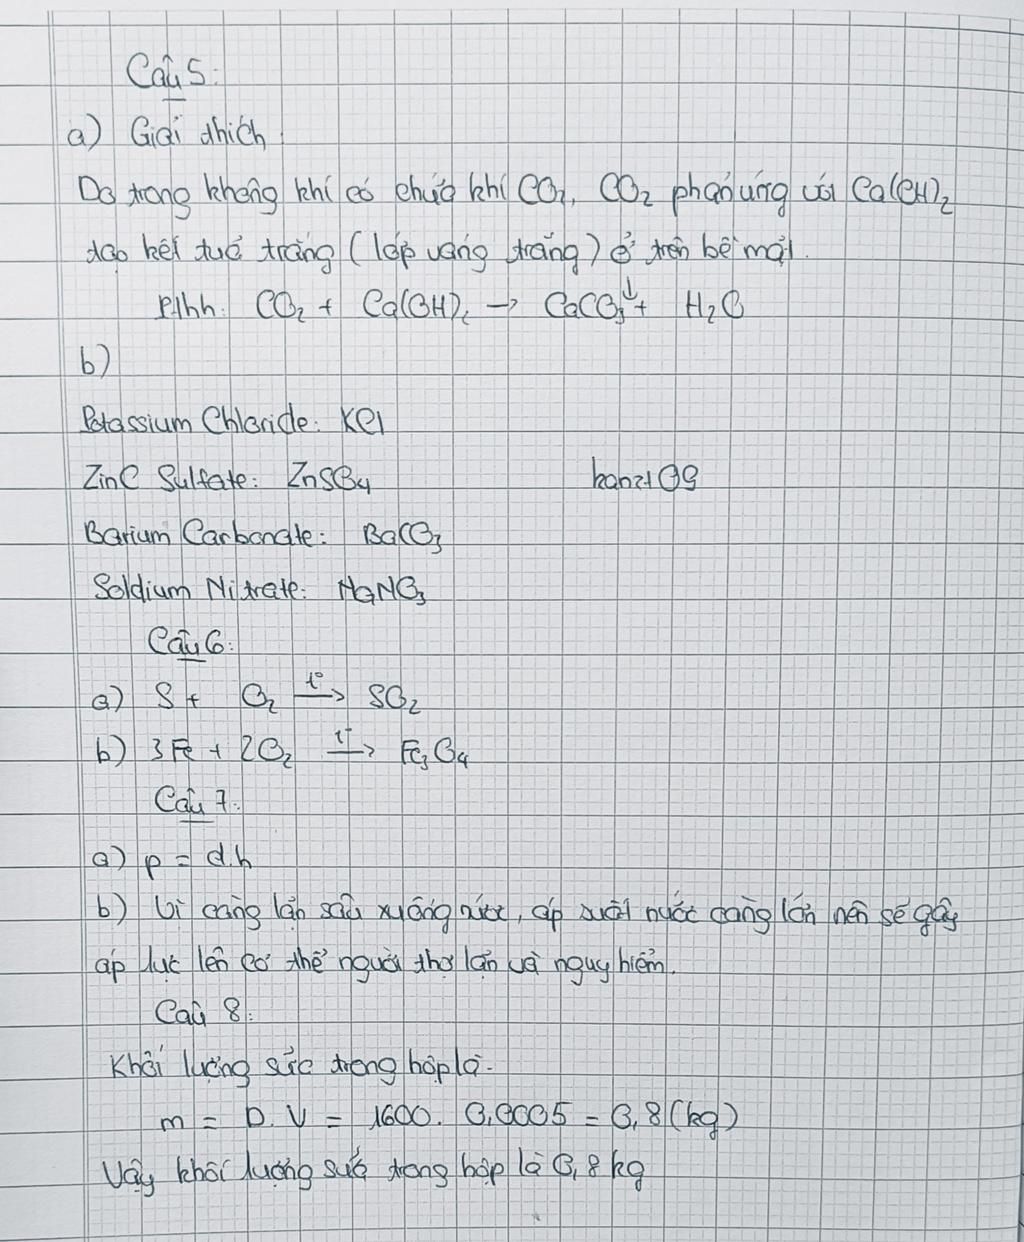 Câu 5:
a) Giải thích
Do trong không khí có chứa khí CO₂, CO₂ phản ứng với Ca(OH)₂
tạo kết tuả trắng (lớp váng trắng) ở trên bề mặt.
Pthh: CO₂ + Ca(OH)₂ → CaCO₃↓ + H₂O
b)
Potassium Chloride: KCl
ZinC Sulfate: ZnSO₄
Barium Carbonate: BaCO₃
Soldium Nitrate: NaNO₃
Câu 6:
a) S + O₂ t°→ SO₂
b) 3Fe + 2O₂ t°→ Fe₃O₄
Câu 7:
a) p = d.h
b) Vì càng lặn sâu xuống nước, áp suất nước càng lớn nên sẽ gây
áp lực lên cơ thể người thợ lặn và nguy hiểm.
Câu 8:
Khối lượng sữa trong hộp là:
m = D.V = 1600. 0,0005 = 0,8 (kg)
Vậy khối lượng sữa trong hộp là 0,8 kg